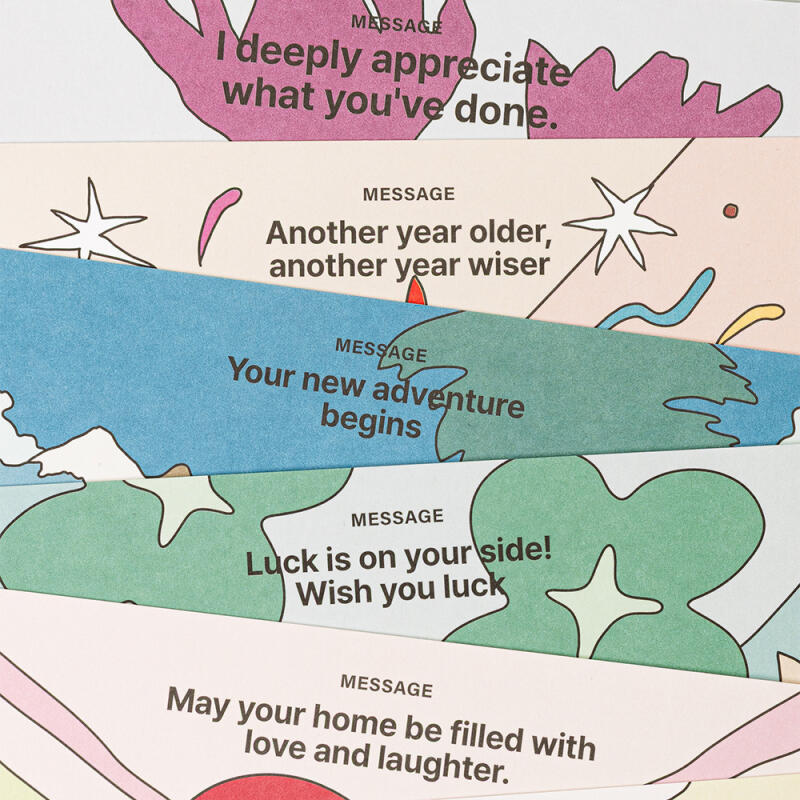 MESSAGE
I deeply appreciate
what you've done.
MESSAGE
Another year older,
another year wiser
MESSAGE
Your new adventure
begins
MESSAGE
Luck is on your side!
Wish you luck
MESSAGE
May your home be filled with
love and laughter.